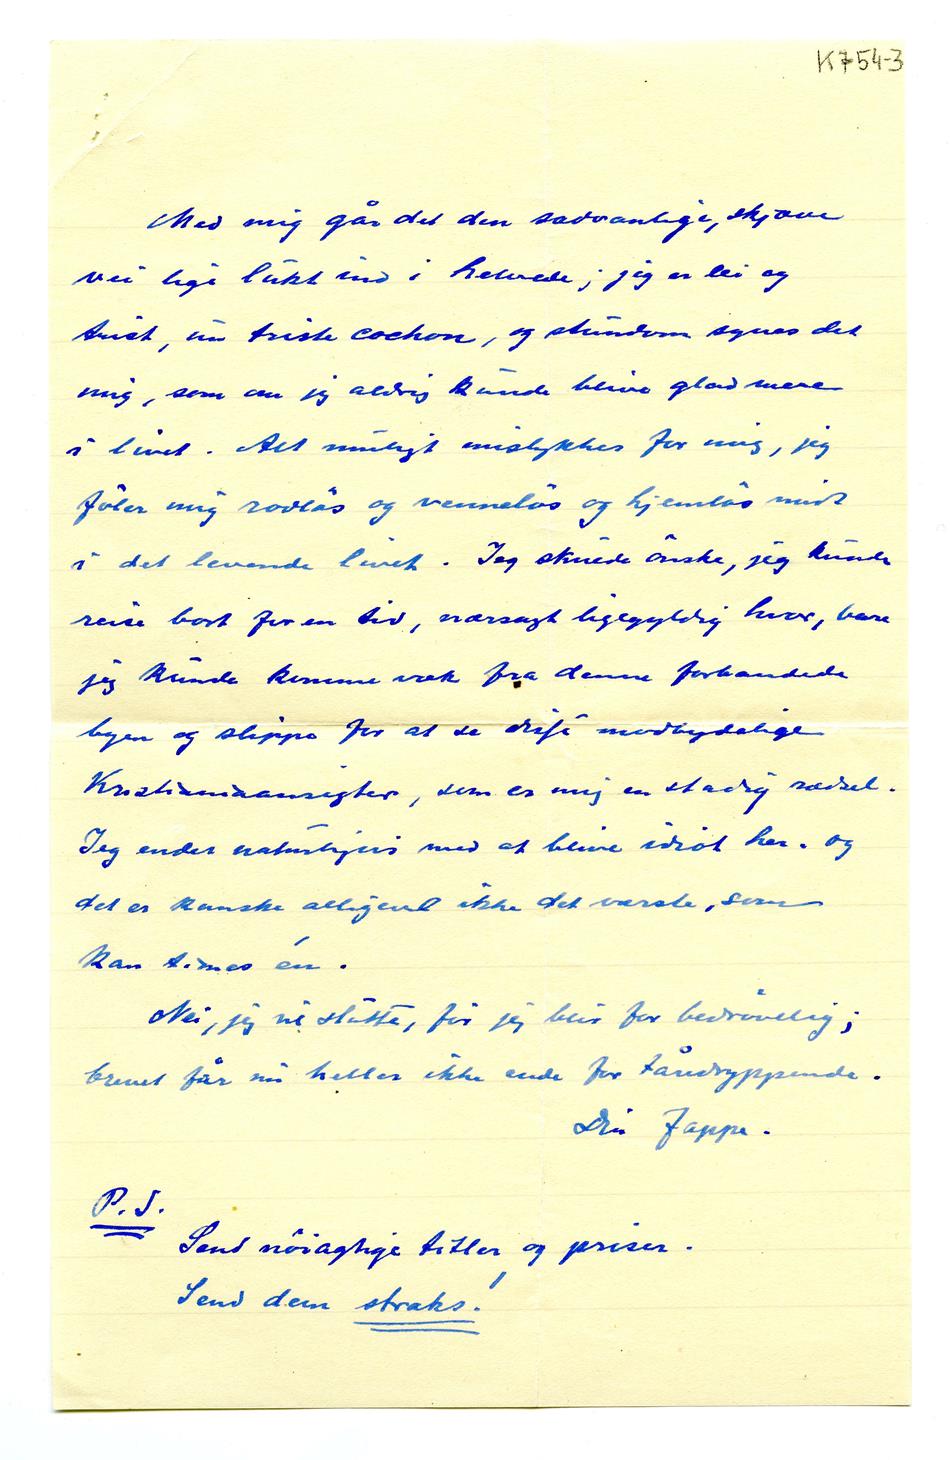 K754-3
Med mig går det den sædvanlige, skjæve
vei lige lukt ind i helvede; jeg er lei og
trist, un triste cochon, og stundom synes det
mig, som om jeg aldrig kunde blive glad mere
i livet. Alt muligt mislykkes for mig, jeg
föler mig rodlös og venneløs og hjemlös midt
i det levende livet. Jeg skulde önske, jeg kunde
reise bort for en tid, nærsagt ligegyldig hvor, bare
jeg kunde komme væk fra denne forbandede
byen og slippe for at se disse modbydelige
Kristianiaansigter, som er mig en stadig rædsel.
Jeg ender naturligvis med at blive idiot her. og
det er kanske alligevel ikke det værste, som
kan times én.
Nei, jeg må slutte, for jeg blir for bedrövelig;
brevet får nu heller ikke ende for tåredryppende.
Din Jappe.
P.S.
Send nöiagtige titler og priser.
Send dem straks!